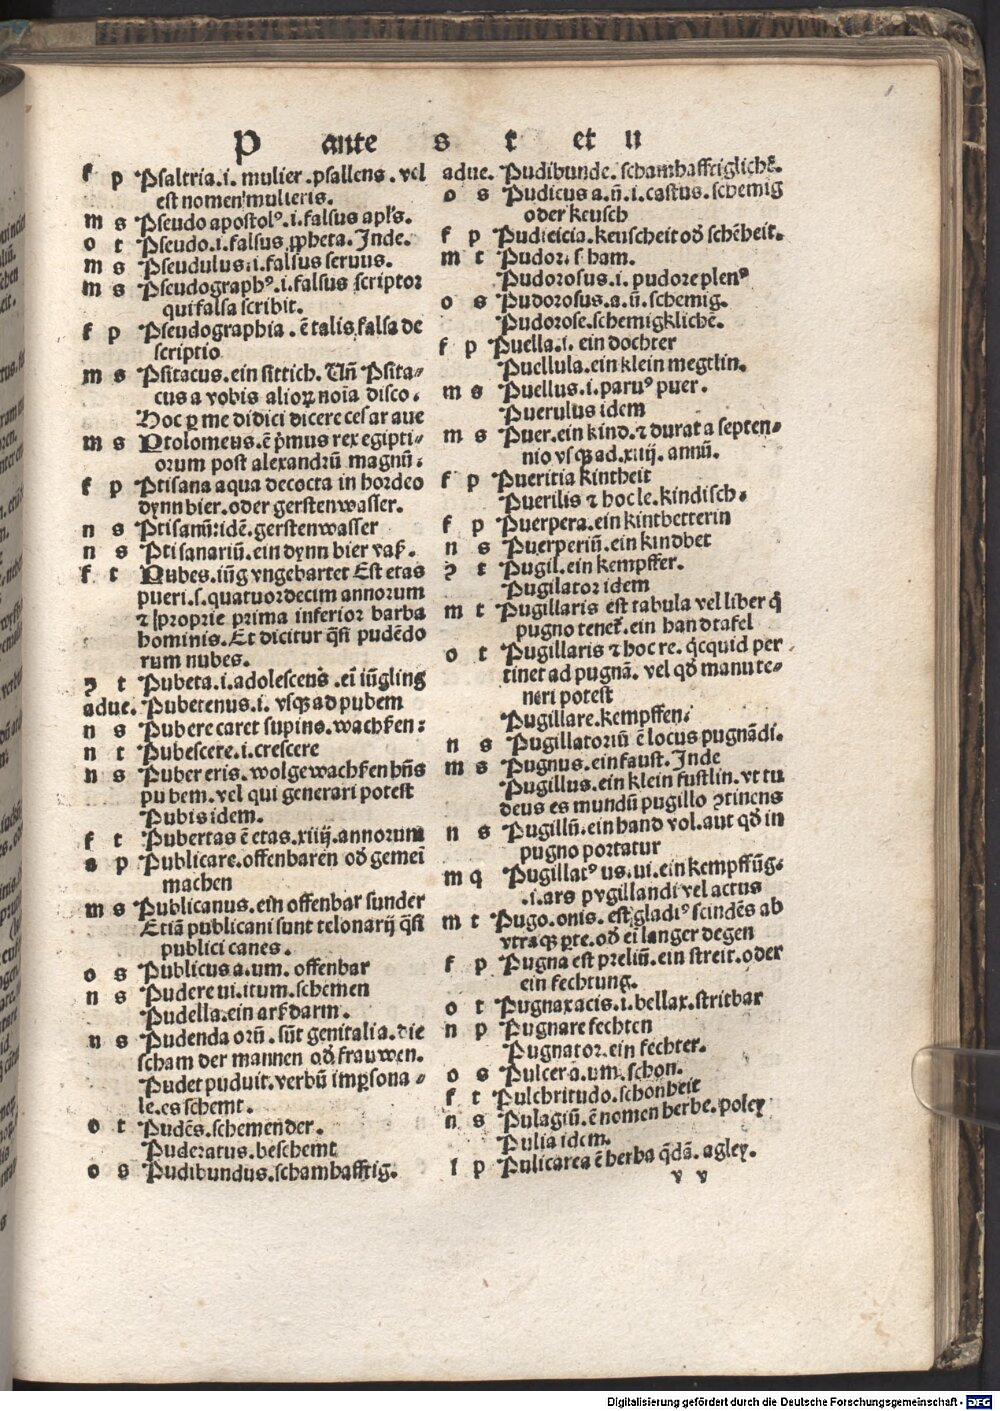 P ante s t et u
f p Psaltria.i. mulier.psallens.vel
est nomen mulieris.
m s Pseudo apostolꝰ.i.falsus apl's.
o t Pseudo.i.falsus ꝓpheta. Inde.
m s Pseudulus.i.falsus seruus.
m s Pseudographꝰ.i.falsus scriptor
qui falsa scribit.
f p Pseudographia. ē talis falsa de
scriptio
m s Psitacus.ein sittich. Uñ Psita⸗
cus a vobis alioꝝ noīa disco.
Hoc ꝑ me didici dicere cesar aue
m s Ptolomeus.ē p̄mus rex egipti⸗
orum post alexandrū magnū.
f p Ptisana aqua decocta in hordeo
dynn bier.oder gerstenwasser.
n s Ptisanū.idē.gerstenwasser
n s Ptisanariū.ein dynn bier vaß.
f t Pubes.iūg vngebartet Est etas
pueri.s.quatuordecim annorum
⁊ proprie prima inferior barba
hominis. Et dicitur q̄si pudēdo
rum nubes.
ꝯ t Pubeta.i.adolescens. eī iūgling
adue. Pubetenus.i. vsqꝫ ad pubem
n s Pubere caret supins.wachsen:
n t Pubescere.i.crescere
n s Puber eris.wolgewachsen hn̄s
pubem.vel qui generari potest
Pubis idem.
f t Pubertas ē etas.xiiij.annorum
a p Publicare.offenbaren od̄ gemeī
machen
m s Publicanus.ein offenbar sunder
Etiā publicani sunt telonarij q̄si
publici canes.
o s Publicus a.um. offenbar
n s Pudere ui.itum.schemen
Pudella.ein arßdarm.
n s Pudenda orū. sūt genitalia.die
scham der mannen od̄ frauwen.
Pudet puduit.verbū imꝑsona⸗
le.es schemt.
o t Pudēs.schemender.
Puderatus.beschemt
o s Pudibundus.schamhafftig.
adue. Pudibunde.schamhafftiglichē.
o s Pudicus a.ū.i.castus.schemig
oder keusch
f p Pudicicia.keuscheit od̄ schēheit.
m t Pudor. scham.
Pudorosus.i. pudore plenꝰ
o s Pudorosus.a.ū.schemig.
Pudorose.schemigklichē.
f p Puella.i. ein dochter
Puellula.ein klein megtlin.
m s Puellus.i.paruꝰ puer.
Puerulus idem
m s Puer.ein kind.⁊ durat a septen⸗
nio vsqꝫ ad.xiiij. annū.
f p Pueritia kintheit
Puerilis ⁊ hoc le.kindisch.
f p Puerpera.ein kintbetterin
n s Puerperiū.ein kindbet
ꝯ t Pugil.ein kempffer.
Pugilator idem
m t Pugillaris est tabula vel liber q̄
pugno tenet̄.ein handtafel
o t Pugillaris ⁊ hoc re. q̄cquid per
tinet ad pugnā. vel qd̄ manu te⸗
neri potest
Pugillare.kempffen.
n s Pugillatoriū ē locus pugnādi.
m s Pugnus.ein faust. Inde
Pugillus.ein klein fustlin.vt tu
deus es mundū pugillo ꝯtinens
n s Pugillū.ein hand vol.aut qd̄ in
pugno portatur
m q Pugillatꝰ us.ui.ein kempffūg.
.i.ars pvgillandi vel actus
m t Pugo.onis. est gladiꝰ scindēs ab
vtraqꝫ ꝑte.od̄ eī langer degen
f p Pugna est preliū.ein streit.oder
ein fechtung.
o t Pugnax acis.i.bellax.stritbar
n p Pugnare fechten
Pugnator.ein fechter.
o s Pulcer a.um.schon.
f t Pulchritudo.schonheit
n s Pulagiū.ē nomen herbe.poley
Pulia idem.
f p Pulicarea ē herba q̄dā. agley.
v v
Digitalisierung gefördert durch die Deutsche Forschungsgemeinschaft - DFG